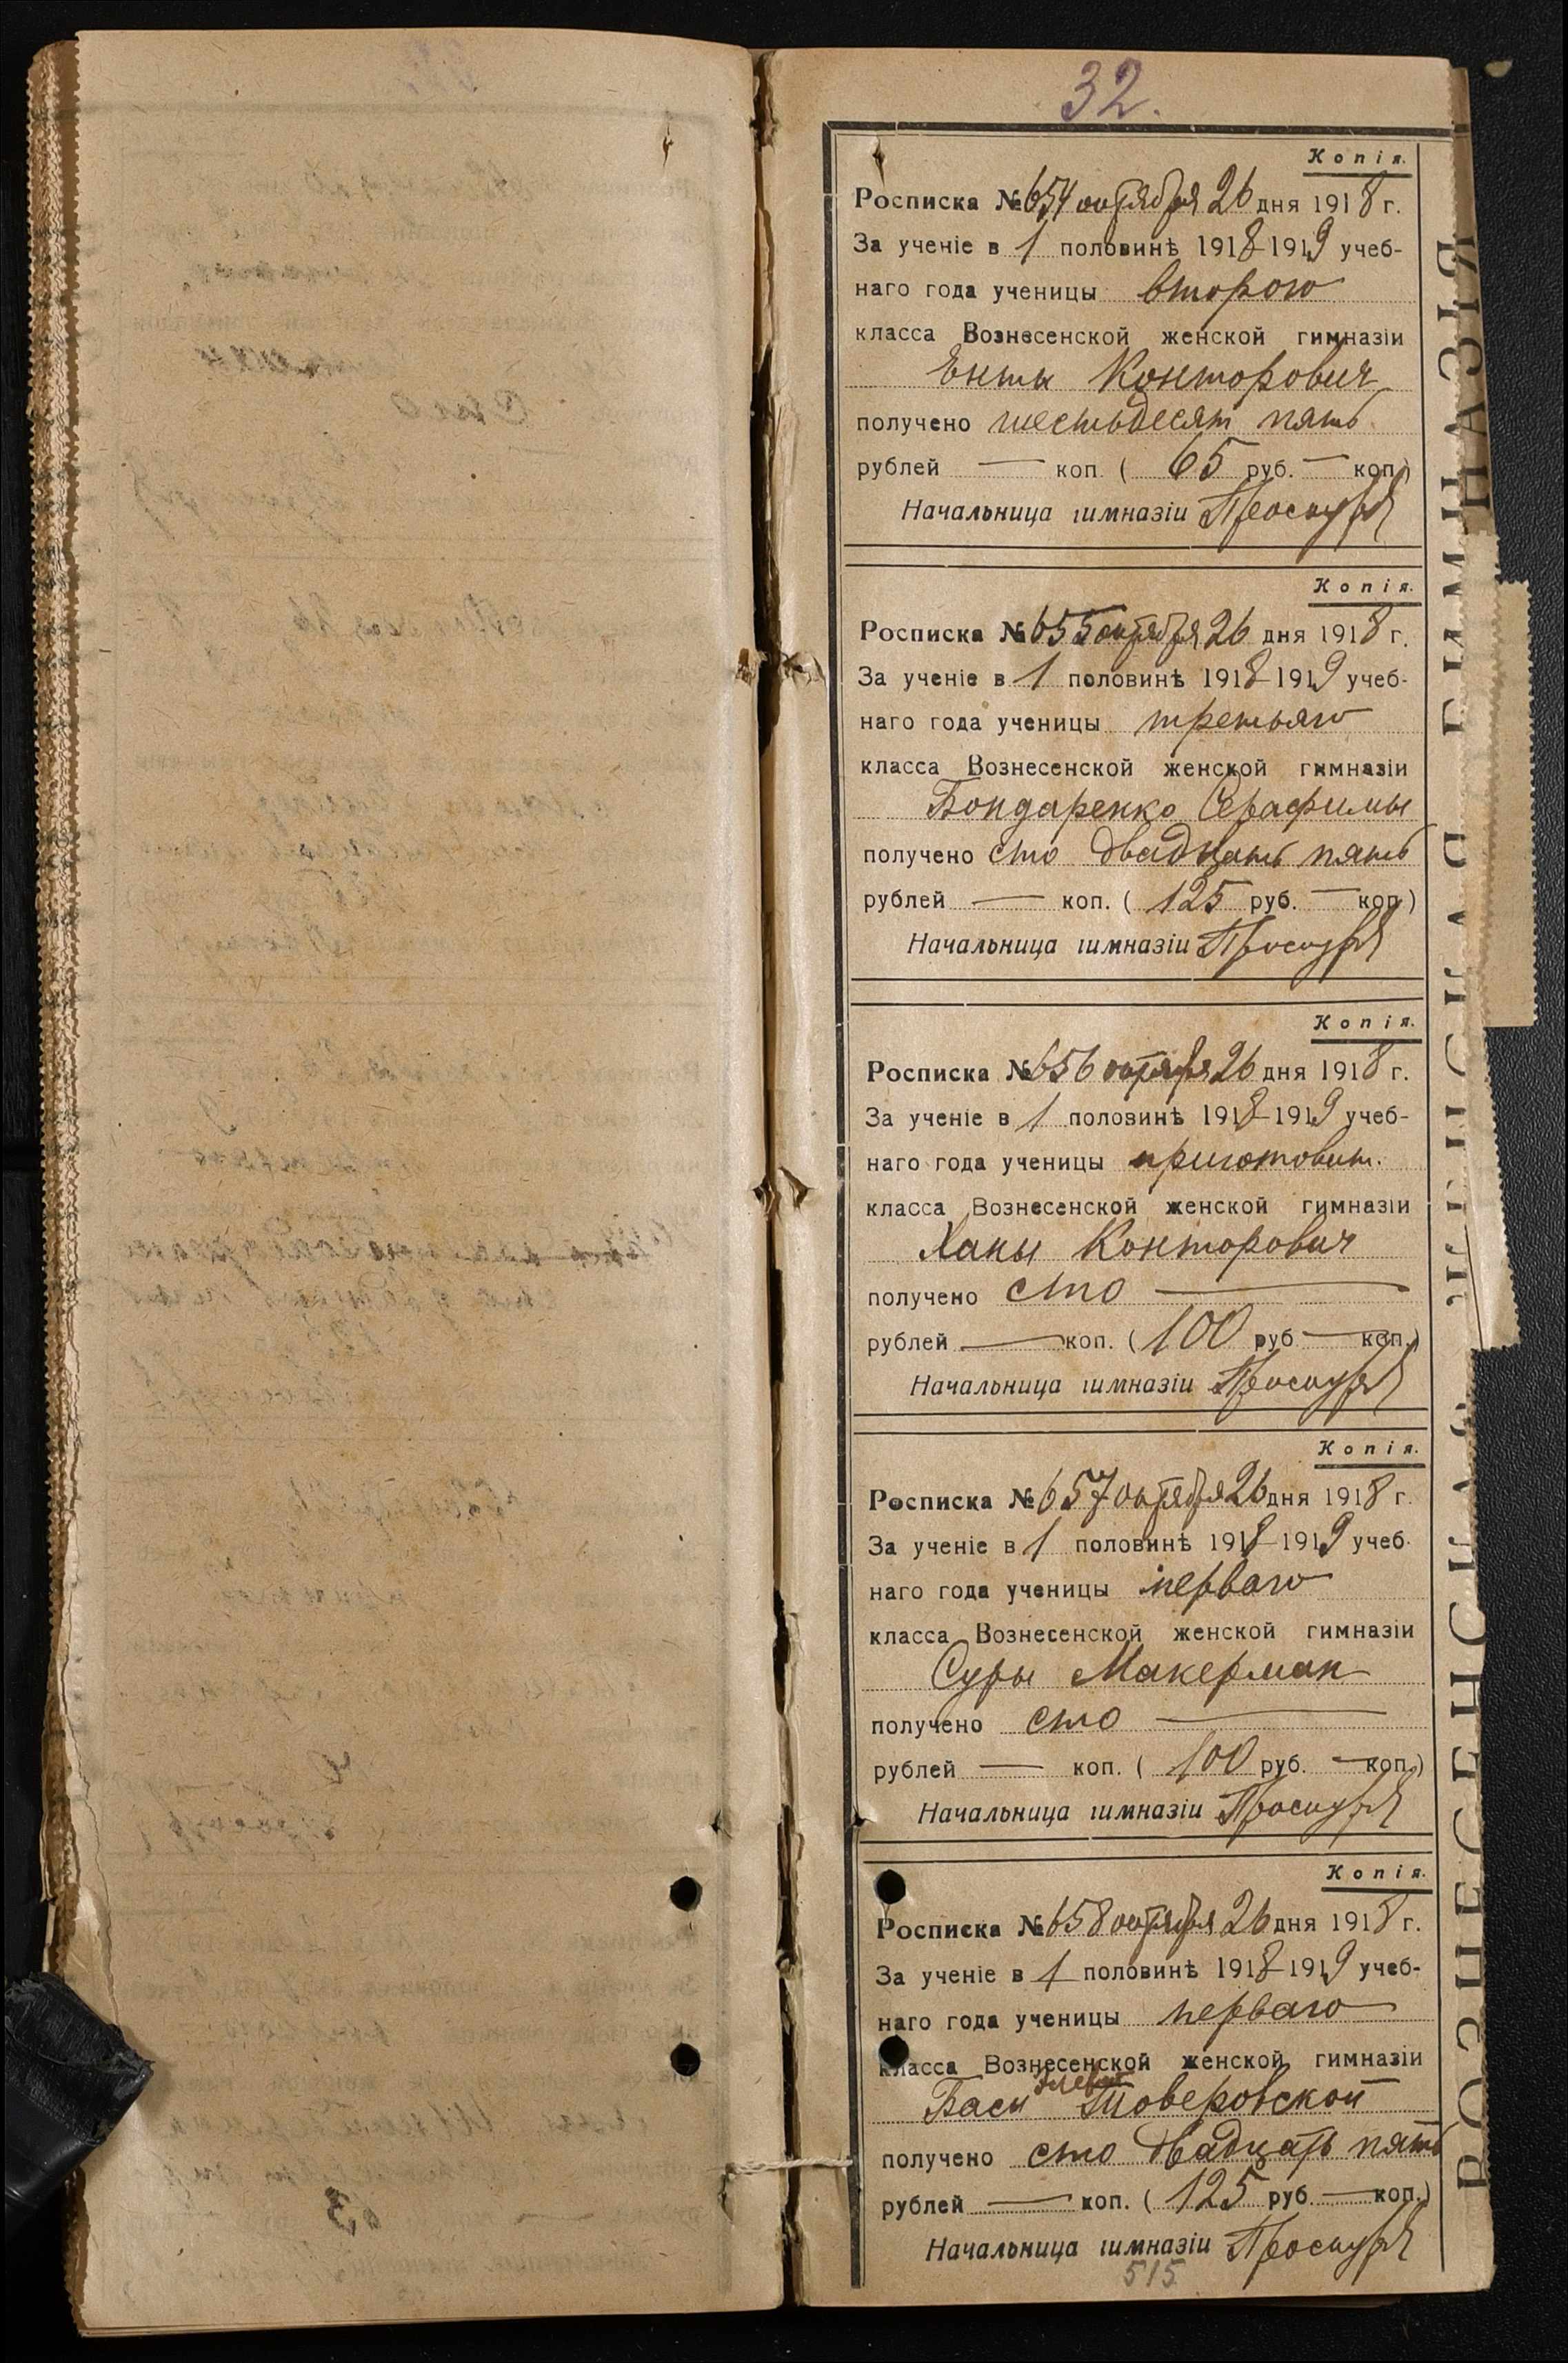 32.
Копія.
Росписка № 654 октября 26 дня 1918 г.
За ученіе в 1 половинѣ 1918-1919 учеб-
наго года ученицы второго
класса Вознесенской женской гимназіи
Енты Конторович
получено шестьдесят пять
рублей — коп. ( 65 руб. — коп.)
Начальница гимназіи
Копія.
Росписка № 655 октября 26 дня 1918 г.
За ученіе в 1 половинѣ 1918-1919 учеб-
наго года ученицы третьяго
класса Вознесенской женской гимназіи
Бондаренко Серафимы
получено сто двадцать пять
рублей — коп. ( 125 руб. — коп.)
Начальница гимназіи
Копія.
Росписка № 656 октября 26 дня 1918 г.
За ученіе в 1 половинѣ 1918-1919 учеб-
наго года ученицы приготовит.
класса Вознесенской женской гимназіи
Ханы Конторович
получено сто —
рублей — коп. ( 100 руб — коп.)
Начальница гимназіи
Копія.
Росписка № 657 октября 26 дня 1918 г.
За ученіе в 1 половинѣ 1918-1919 учеб-
наго года ученицы перваго
класса Вознесенской женской гимназіи
Суры Макерман
получено сто —
рублей — коп. ( 100 руб. — коп.)
Начальница гимназіи
Копія.
Росписка № 658 октября 26 дня 1918 г.
За ученіе в 1 половинѣ 1918-1919 учеб-
наго года ученицы перваго
класса Вознесенской женской гимназіи
Баси
получено сто двадцать пять
рублей — коп. ( 125 руб. — коп.)
Начальница гимназіи
515
63